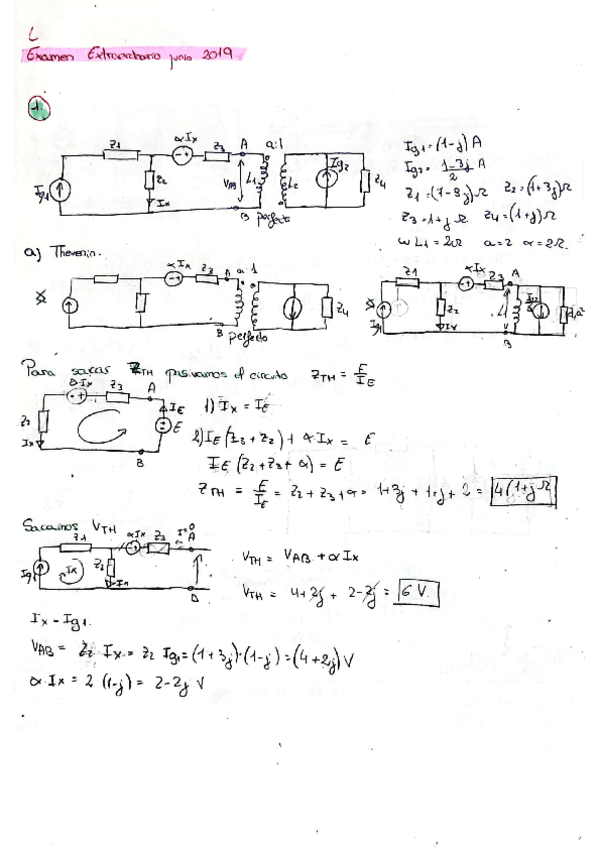 L
Examen Extraordinario junio 2019
1.
Z1 αIx Z3 A a:1
Ig1 Z2 Ix VAB L1 L2 Ig2 Z4
B perfecto
Ig1 = (1-j) A
Ig2 = 1-3j/2 A
Z1 = (1-3j)Ω Z2 = (1+3j)Ω
Z3 = 1+j Ω Z4 = (1+j)Ω
ωL1 = 2Ω a=2 α=2Ω.
a) Thevenin.
αIx Z3 A a:1
Z4
B perfecto
Z1 αIx Z3 A
Ig1 Z2 Ix
B
Para sacar ZTH pasivamos el circuito ZTH = E/IE
αIx Z3 A
Z2 Ix IE E
B
1) Ix = IE
2) IE (Z3 + Z2) + αIx = E
IE (Z2 + Z3 + α) = E
ZTH = E/IE = Z2 + Z3 + α = 1+3j + 1+j + 2 = 4(1+j Ω
Sacamos VTH
Z1 αIx Z3 I=0 A
Ig1 Ix Z2 Ix
VTH = VAB + αIx
VTH = 4+2j + 2-2j = 6 V.
Ix = Ig1.
VAB = Z2 Ix = Z2 Ig1 = (1+3j)·(1-j) = (4+2j) V
α·Ix = 2 (1-j) = 2-2j V